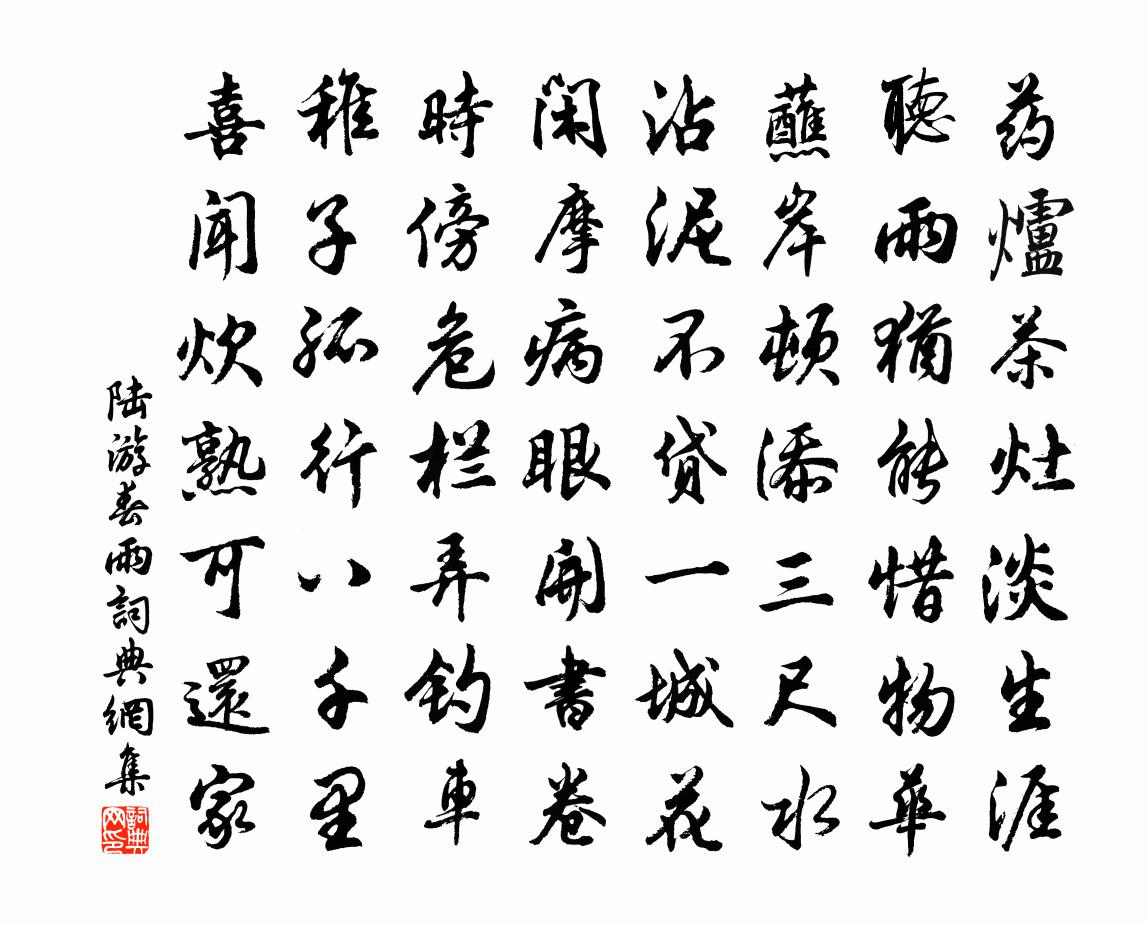 药爐茶灶淡生涯
聽雨猶能惜物華
蘸岸頓添三尺水
沾泥不貸一城花
閑摩病眼開書卷
時傍危栏弄釣車
稚子孤行八千里
喜聞炊熟可還家
陆游春雨詞典網集
詞典網印